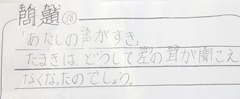 問題㉘
「あたしの声がすき」
たまきは、どうして左の耳が聞こえ
なくなったのでしょう。